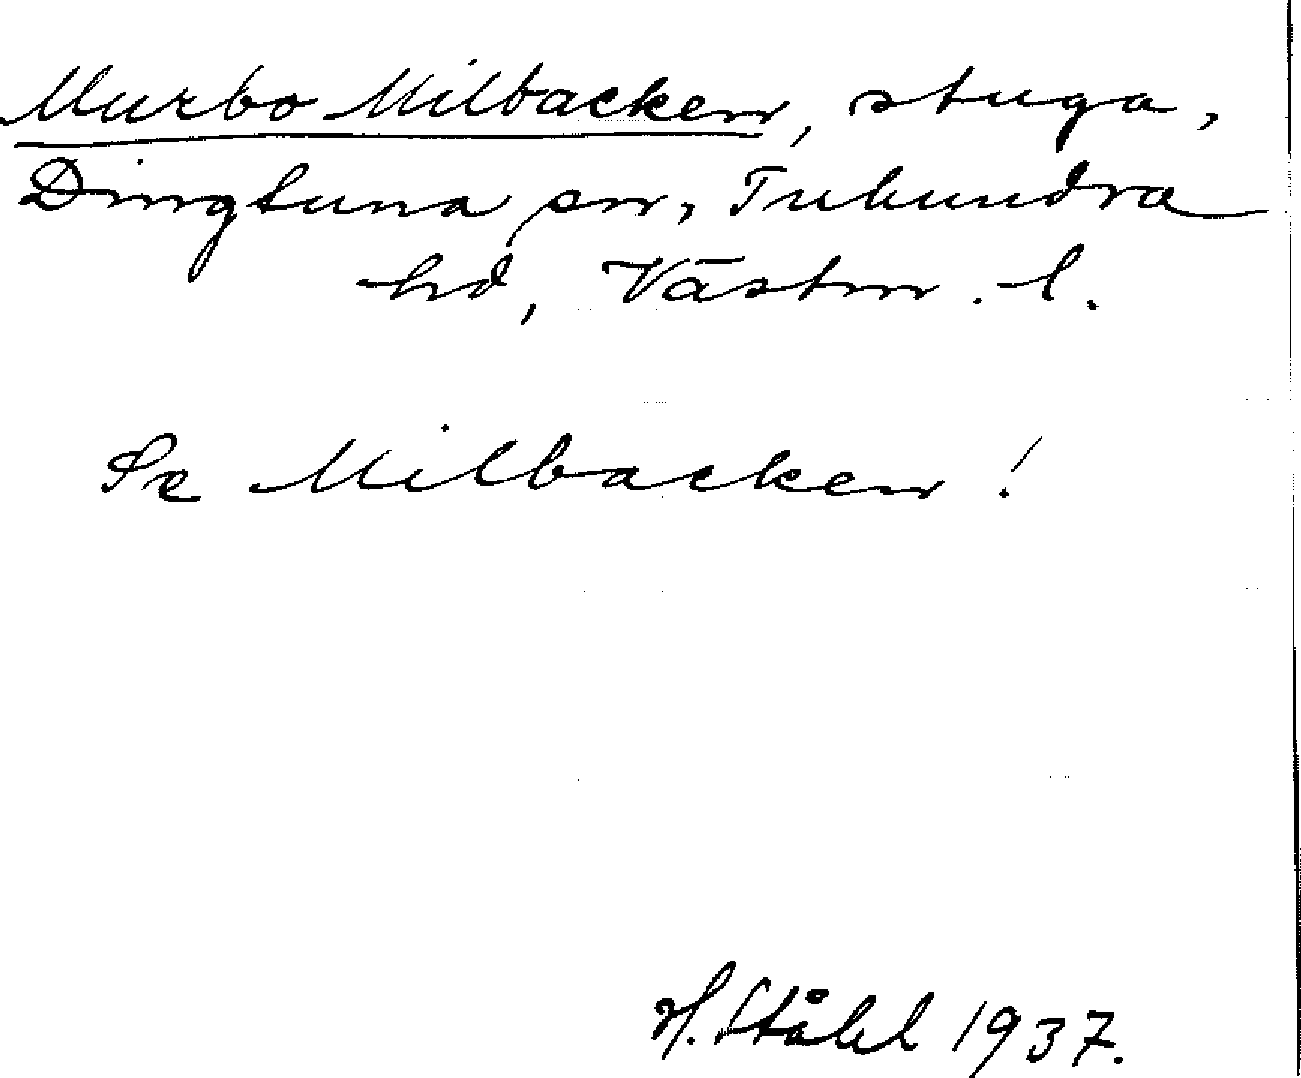 Murbo Milbacken, stuga,
Dingtuna sn, Tuhundra
hd, Västm. l.
Se Milbacken!
H. Ståhl 1937.